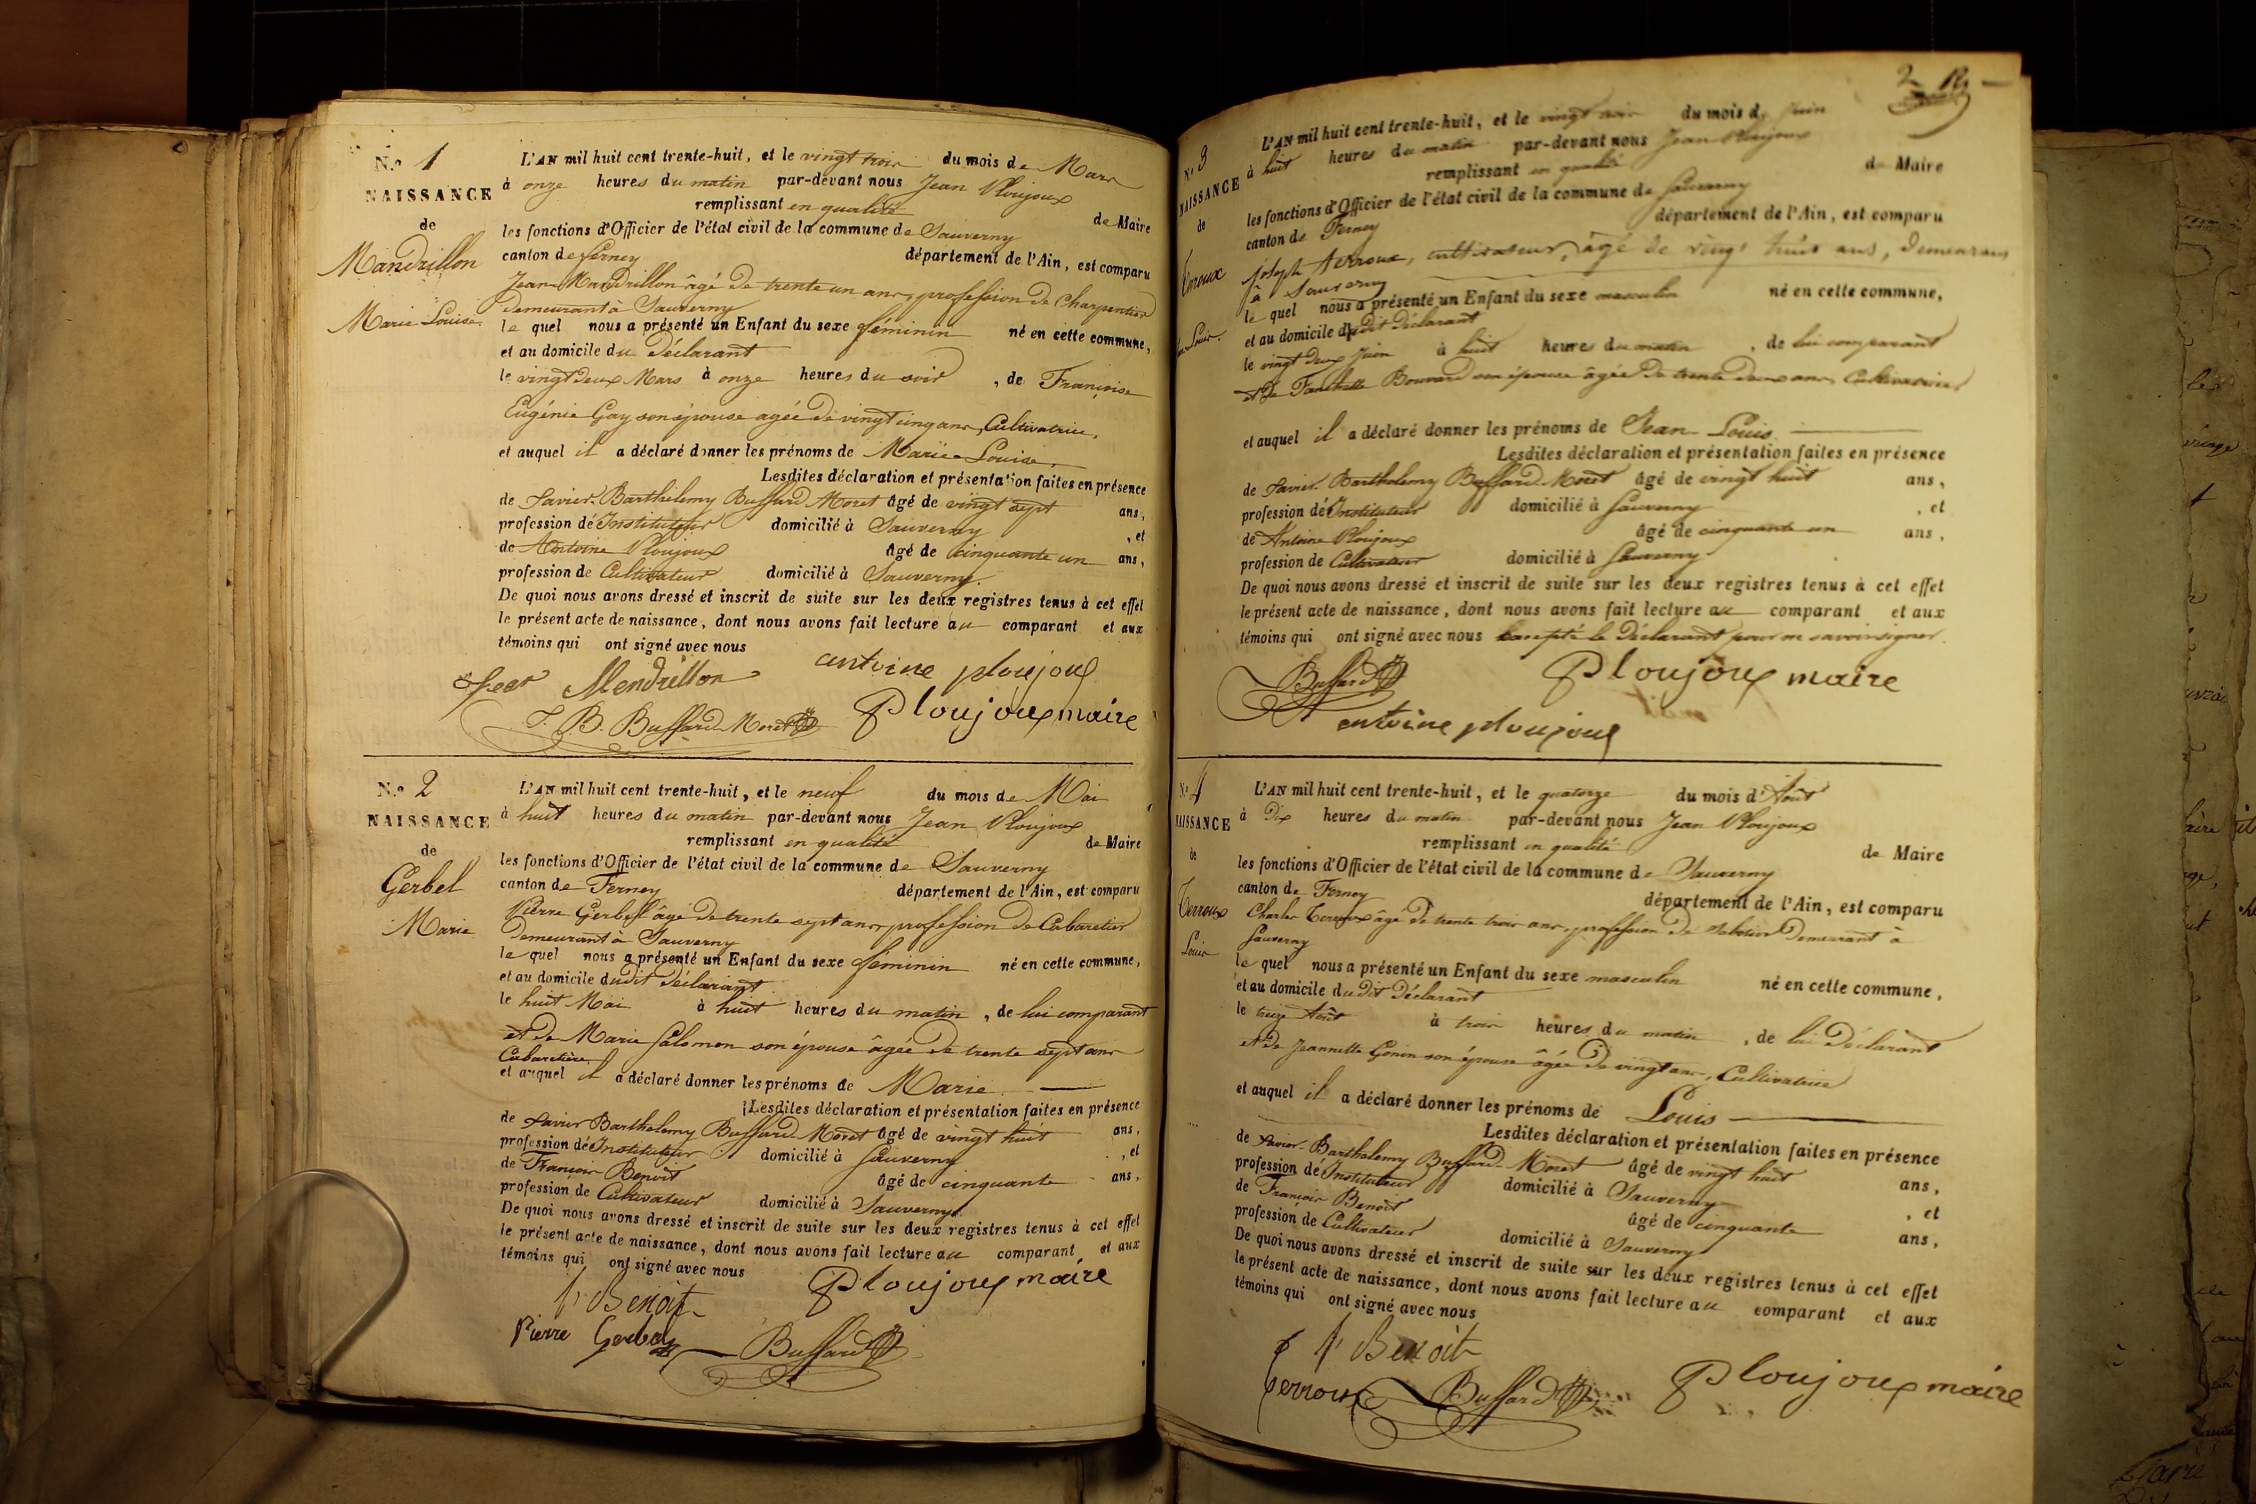 N.o 1
NAISSANCE
de
Mandrillon
Marie-Louise
L'AN mil huit cent trente-huit, et le vingt trois du mois de Mars
à onze heures du matin par-devant nous Jean Ploujoux
remplissant en qualité de Maire
les fonctions d'Officier de l'état civil de la commune de Sauverny
canton de Ferney département de l'Ain, est comparu
Jean Mandrillon âgé de trente un ans, profession de Charpentier
demeurant à Sauverny
le quel nous a présenté un Enfant du sexe féminin né en cette commune,
et au domicile du Déclarant
le vingt deux Mars à onze heures du soir, de Françoise
Eugénie Gay son épouse agée de vingt cinq ans, Cultivatrice,
et auquel il a déclaré donner les prénoms de Marie-Louise.
Lesdites déclaration et présentation faites en présence
de Xavier-Barthelemy Buffard-Moret âgé de vingt sept ans,
profession d'Instituteur domicilié à Sauverny, et
de Antoine Ploujoux âgé de cinquante un ans,
profession de Cultivateur domicilié à Sauverny.
De quoi nous avons dressé et inscrit de suite sur les deux registres tenus à cet effet
le présent acte de naissance, dont nous avons fait lecture au comparant et aux
témoins qui ont signé avec nous
Mendrillon antoine ploujoux
Buffard-Moret Ploujoux maire
N.o 2
NAISSANCE
de
Gerbel
Marie
L'AN mil huit cent trente-huit, et le neuf du mois de Mai
à huit heures du matin par-devant nous Jean Ploujoux
remplissant en qualité de Maire
les fonctions d'Officier de l'état civil de la commune de Sauverny
canton de Ferney département de l'Ain, est comparu
Pierre Gerbel âgé de trente sept ans, profession de Cabaretier
Demeurant à Sauverny
le quel nous a présenté un Enfant du sexe féminin né en cette commune,
et au domicile dudit déclarant
le huit Mai à huit heures du matin, de lui comparant
et de Marie Salomon son épouse âgée de trente sept ans
Cabaretière
et auquel il a déclaré donner les prénoms de Marie
Lesdites déclaration et présentation faites en présence
de Xavier Barthelemy Buffard-Moret âgé de vingt huit ans,
profession d'Instituteur domicilié à Sauverny, et
de François Benoît âgé de cinquante ans,
profession de Cultivateur domicilié à Sauverny.
De quoi nous avons dressé et inscrit de suite sur les deux registres tenus à cet effet
le présent acte de naissance, dont nous avons fait lecture au comparant et aux
témoins qui ont signé avec nous
f Benoit Ploujoux maire
Pierre Gerbel Buffard
2
N.o 3
NAISSANCE
de
Terroux
Jean Louis.
L'AN mil huit cent trente-huit, et le vingt trois du mois de Juin
à huit heures du matin par-devant nous Jean Ploujoux
remplissant en qualité de Maire
les fonctions d'Officier de l'état civil de la commune de Sauverny
canton de Ferney département de l'Ain, est comparu
joseph terroux, cultivateur, âgé de vingt huit ans, demeurant
à Sauverny
le quel nous a présenté un Enfant du sexe masculin né en cette commune,
et au domicile dudit Déclarant
le vingt deux Juin à huit heures du matin, de lui comparant
et de Fanchette Bouvard son épouse âgée de trente deux ans, Cultivatrice
et auquel il a déclaré donner les prénoms de Jean-Louis
Lesdites déclaration et présentation faites en présence
de Xavier Bartholemy Buffard-Moret âgé de vingt huit ans,
profession d'Instituteur domicilié à Sauverny, et
de Antoine Ploujoux âgé de cinquante un ans,
profession de Cultivateur domicilié à Sauverny
De quoi nous avons dressé et inscrit de suite sur les deux registres tenus à cet effet
le présent acte de naissance, dont nous avons fait lecture au comparant et aux
témoins qui ont signé avec nous excepté le Déclarant pour ne savoir signer.
Buffard Ploujoux maire
antoine ploujoux
N.o 4
NAISSANCE
de
Terroux
Louis
L'AN mil huit cent trente-huit, et le quatorze du mois d'Août
à Dix heures du matin par-devant nous Jean Ploujoux
remplissant en qualité de Maire
les fonctions d'Officier de l'état civil de la commune de Sauverny
canton de Ferney département de l'Ain, est comparu
Charles Terroux âgé de trente trois ans, profession de sabotier Demeurant à
Sauverny
le quel nous a présenté un Enfant du sexe masculin né en cette commune,
et au domicile dudit Déclarant
le treize Août à trois heures du matin, de lui Déclarant
et de Jeannette Gonin son épouse âgée de vingt ans, Cultivatrice
et auquel il a déclaré donner les prénoms de Louis
Lesdites déclaration et présentation faites en présence
de Xavier-Barthelemy Buffard-Moret âgé de vingt huit ans,
profession d'Instituteur domicilié à Sauverny, et
de François Benoît âgé de cinquante ans,
profession de Cultivateur domicilié à Sauverny
De quoi nous avons dressé et inscrit de suite sur les deux registres tenus à cet effet
le présent acte de naissance, dont nous avons fait lecture au comparant et aux
témoins qui ont signé avec nous
f Benoit
Terroux Buffard Ploujoux maire